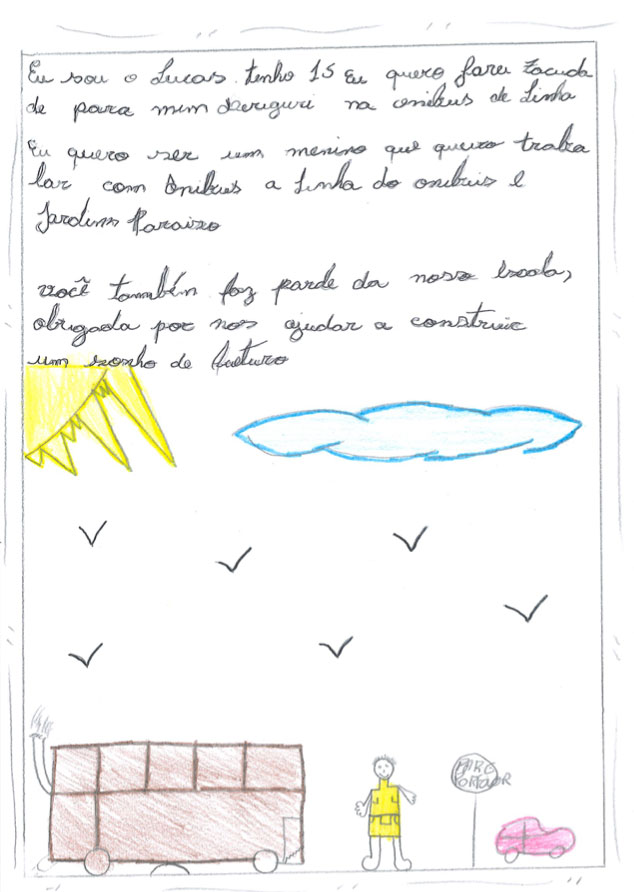 Eu sou o Lucas tenho 15 Eu quero fazer Facuda
de para mim dirriguri na onibus de Linha
Eu quero ser um menino que queiro traba
lar com Onibus a Linha do onibuis e
Jardins Paraizo
você também faz parde da nossa escola,
obrigada por nos ajudar a construir
um sonho de futuro